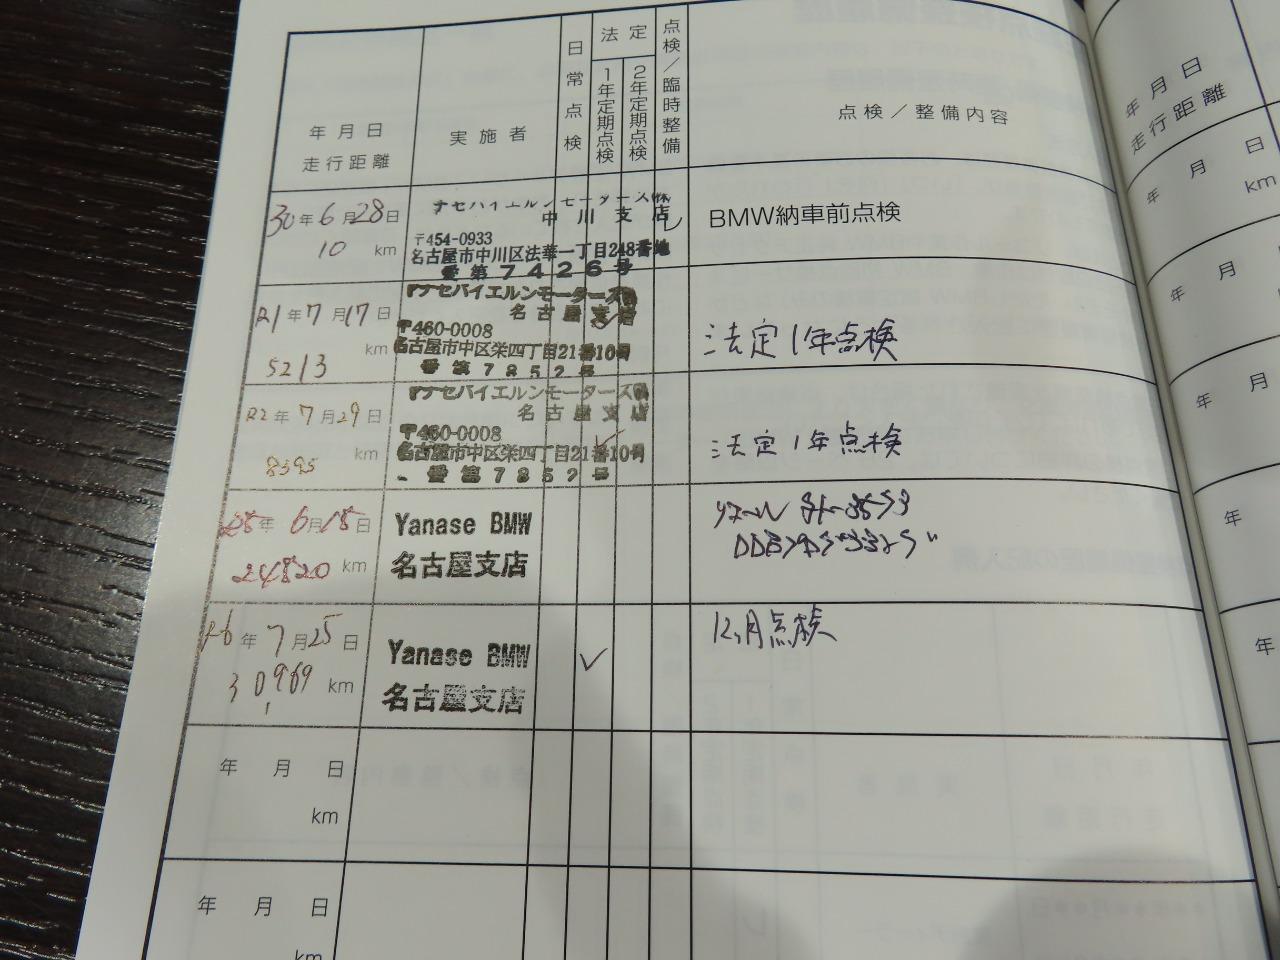 年月日
走行距離
実施者
日常点検
法定
1年定期点検
2年定期点検
点検／臨時整備
点検／整備内容
30年6月28日
10 km
中川支店
〒454-0933
名古屋市中川区法華一丁目248番地
愛第7426号
レ
BMW納車前点検
R1年7月17日
5213 km
ヤナセバイエルンモーターズ㈱
名古屋支店
〒460-0008
名古屋市中区栄四丁目21番10号
愛第7852号
法定1年点検
R2年7月29日
8395 km
ヤナセバイエルンモーターズ㈱
名古屋支店
〒460-0008
名古屋市中区栄四丁目21番10号
愛第7852号
法定1年点検
年6月15日
24820 km
Yanase BMW
名古屋支店
R6年7月25日
30,969 km
Yanase BMW
名古屋支店
12ヶ月点検
年 月 日
km
年 月 日
km
年 月 日
走行距離
年 月 日
km
年 月
年 月
年
年